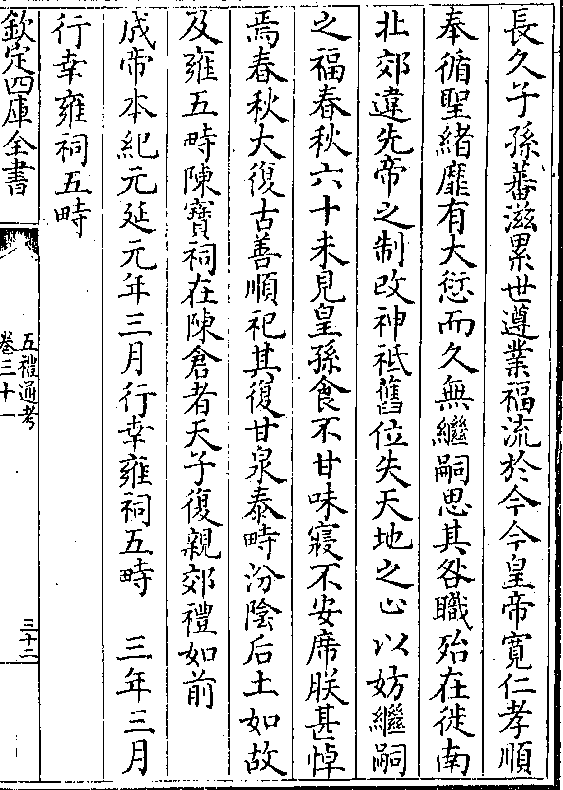 長久子孫蕃滋累世遵業福流於今今皇帝寛仁孝順
奉循聖緒靡有大愆而久無繼嗣思其咎職殆在徙南
北郊違先帝之制改神祇舊位失天地之心以妨繼嗣
之福春秋六十未見皇孫食不甘味寢不安席朕甚悼
焉春秋大復古善順祀其復甘泉泰畤汾陰后土如故
及雍五畤陳寶祠在陳倉者天子復親郊禮如前
成帝本紀元延元年三月行幸雍祠五畤　三年三月
行幸雍祠五畤
欽定四庫全書
五禮通考
卷三十一
三十二